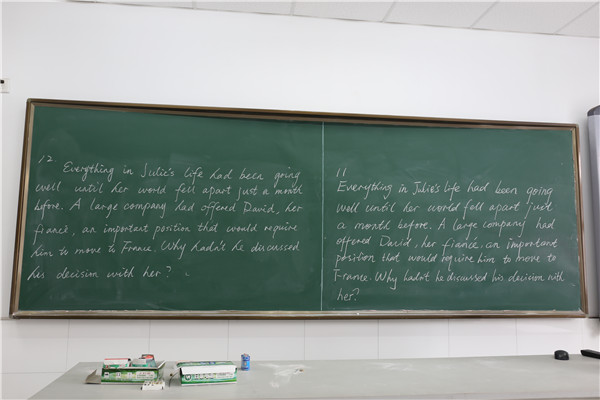 12
Everything in Julie's life had been going
well until her world fell apart just a month
before. A large company had offered David, her
fiancé, an important position that would require
him to move to France. Why hadn't he discussed
his decision with her?
11
Everything in Julie's life had been going
well until her world fell apart just
a month before. A large company had
offered David, her fiancé, an important
position that would require him to move to
France. Why hadn't he discussed his decision with
her?